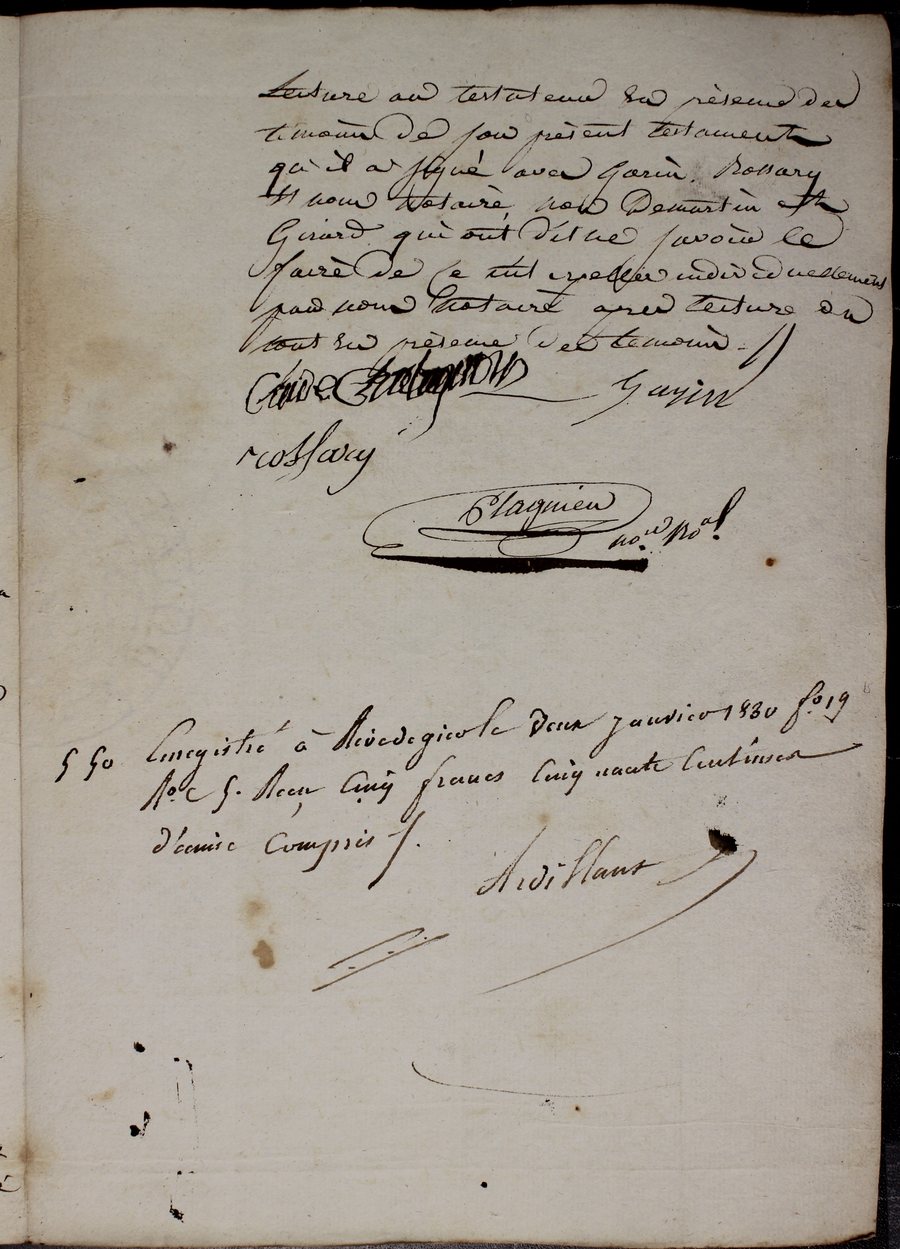 lecture au testateur en présence des
temoins de son présent testament
qu'il a signé avec Garin, Rossary
et nous notaire, non Demartin et
Girard qui ont dit ne savoir le
faire de ce individuellement
par nous notaire après lecture du
tout en présence des temoins
Claude
Garin
rossary
Plagnieu
no.re Ro.al
5 50 Enregistré à Rivedegier le deux janvier 1830 fo 19
Ro. C 5. Reçu Cinq francs Cinquante Centimes
d'ecime Compris
Ardillant